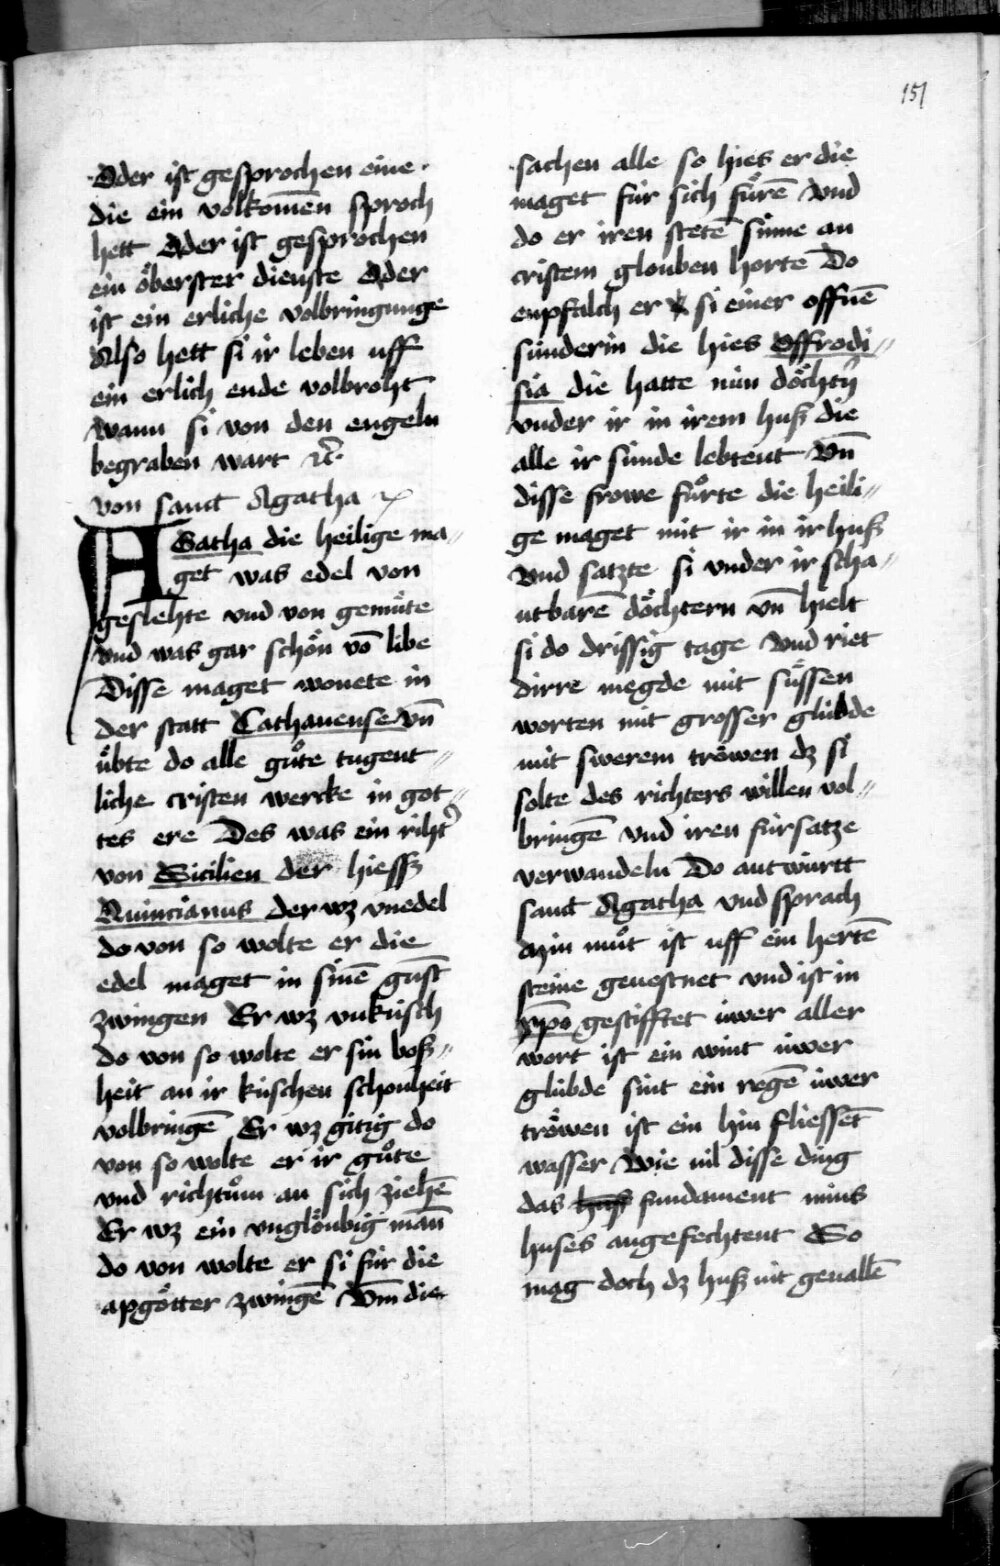 151
Oder ist gesprochen eine
die ein volkomēn sproch
hett Oder ist gesprochen
ein oͤberster dienste Oder
ist ein erliche volbringunge
Also hett si ir leben uff
ein erlich ende volbroht
wann si von den engeln
begraben wart ꝛc̄
von sanct Agatha
AGatha die heilige ma〃
get was edel von
geslehte vnd von gemuͤte
vnd was gar schoͤn vō libe
Disse maget wonete in
der statt Cathanense vn̄
uͤbte do alle guͦte tugent〃
liche cristen wercke in got〃
tes ere Des was ein riht᾽
von Sicilien der hiessz
Quincianus der wz vnedel
do von so wolte er die
edel maget in sinē gust̄
zwingen Er wz vnkusch
do von so wolte er sin bosz〃
heit an ir kuschen schonheit
volbringē Er wz gitig do
von so wolte er ir guͦte
vnd richtuͦm an sich ziehē
Er wz ein vngloͤubig man̄
do von wolte er si fúr die
apgoͤtter zwingē Vm̄ die
sachen alle so hies er die
maget fúr sich fuͤrē vnd
do er iren stetē sinne an
cristem glouben horte Do
enpfalch er si einer offnē
súnderin die hies Offrodi〃
sia die hatte nún doͤcht᾽n
vnder ir in irem husz die
alle ir súnde lebtent Vn̄
disse frowe fuͦrte die heili〃
ge maget mit ir in ir husz
Vnd satzte si vnder ir scha〃
ntbarē doͤchtern vn̄ hielt
si do drissig tage Vnd riet
dirre megde mit suͤssen
worten mit grosser glúbde
mit swerem troͤwen dz si
solte des richters willen vol〃
bringē vnd iren fúrsatze
verwandeln Do antwúrtt
sanct Agatha vnd sprach
Min muͦt ist uff ein hertē
steine geuestnet vnd ist in
xp̄o gestifftet úwer aller
wort ist ein wint úwer
glúbde sint ein regē úwer
troͤwen ist ein hin fliessēt
wasser Wie vil disse ding
das husz fundament mins
huses angefechtent So
mag doch dz husz nit geuallē